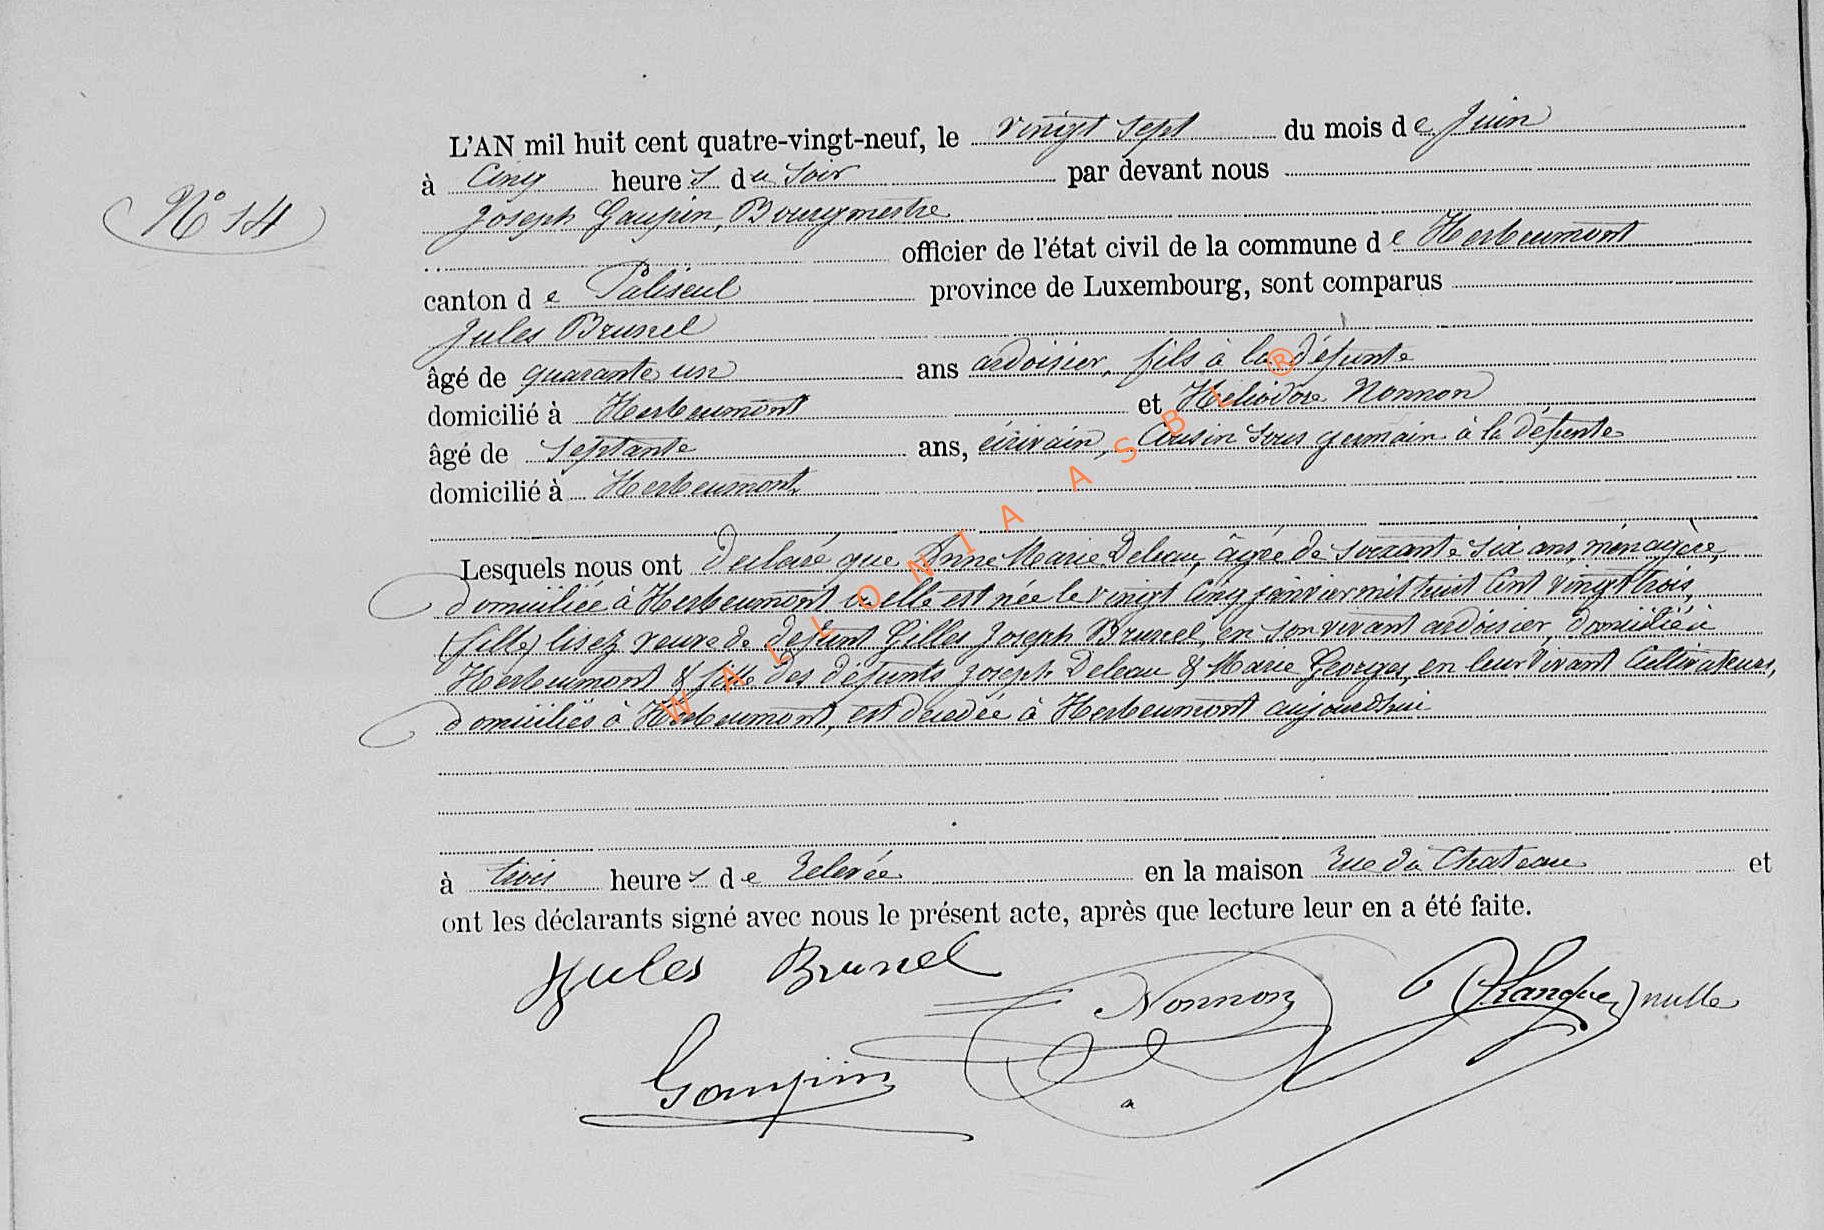 L'AN mil huit cent quatre-vingt-neuf, le vingt sept du mois de Juin
à Cinq heures du Soir par devant nous
N° 14
Joseph Gaupin, Bourgmestre
officier de l'état civil de la commune de Herbeumont
canton de Paliseul province de Luxembourg, sont comparus
Jules Brunel
âgé de quarante un ans ardoisier, fils à la défunte
domicilié à Herbeumont et Héliodore Nonnon
âgé de septante ans, écrivain, Cousin sous germain à la défunte
domicilié à Herbeumont
Lesquels nous ont déclaré que Anne Marie Deleau, âgée de soixante six ans, ménagère,
domiciliée à Herbeumont où elle est née le vingt Cinq janvier mil huit Cent vingt trois,
(fille) lisez veuve de défunt Gilles Joseph Brunel, en son vivant ardoisier, domicilié à
Herbeumont & fille des défunts Joseph Deleau & Marie Georges, en leur vivant Cultivateurs,
domiciliés à Herbeumont, est décédée à Herbeumont aujourd'hui
à trois heures de relevée en la maison rue du Chateau et
ont les déclarants signé avec nous le présent acte, après que lecture leur en a été faite.
Jules Brunel
Nonnon
nulle
Gaupin
WALLONIA ASBL ®